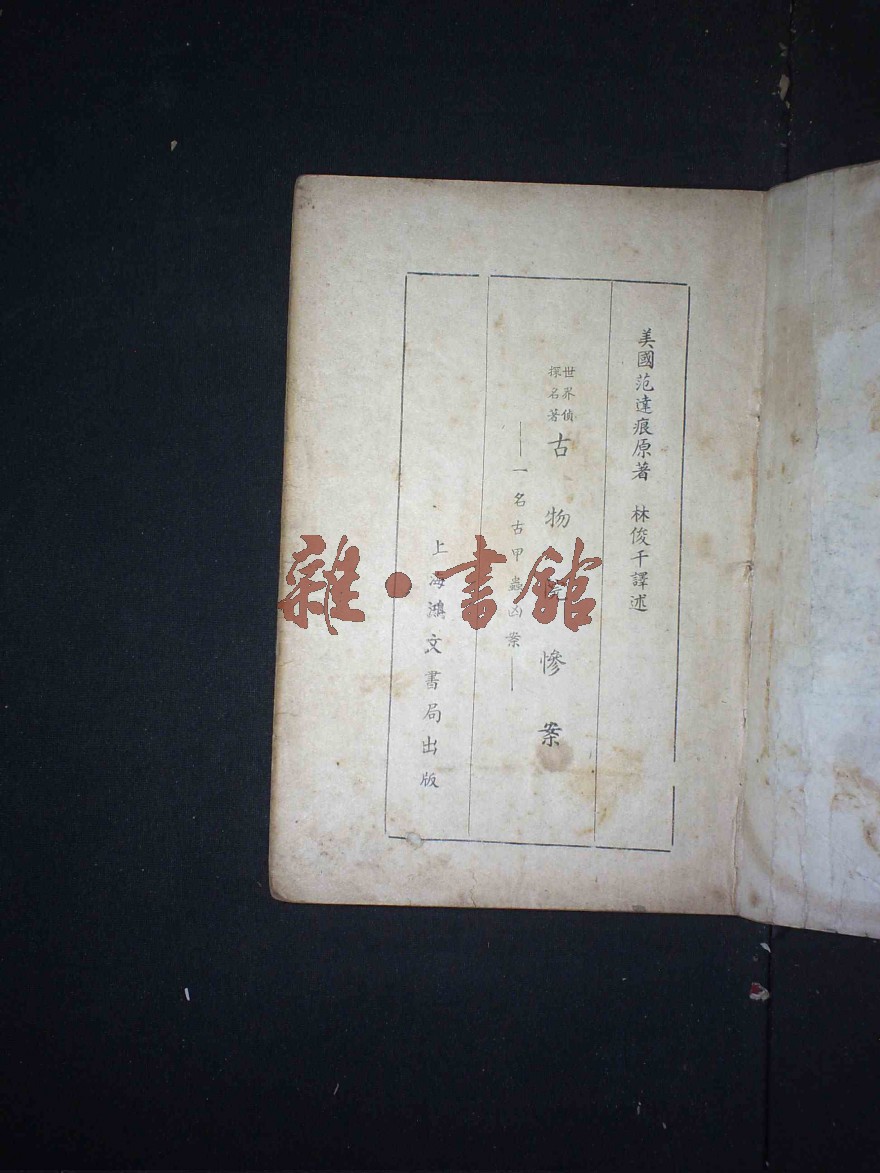 美國范達痕原著 林俊千譯述
世界偵
探名著
古物院慘案
——一名古甲蟲凶案——
上海鴻文書局出版
雜·書館